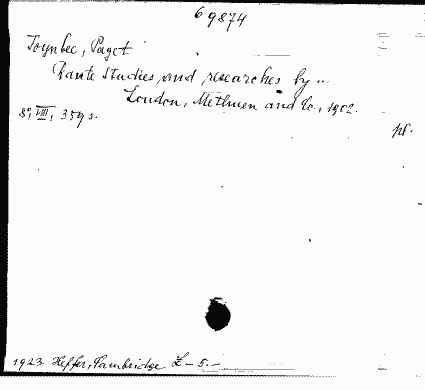 69874
Toynbee, Paget
Dante studies and researches by ...
London, Methuen and Co., 1902.
8°, VIII, 359 s.
pł.
1923 Heffer, Cambridge £ - 5.-